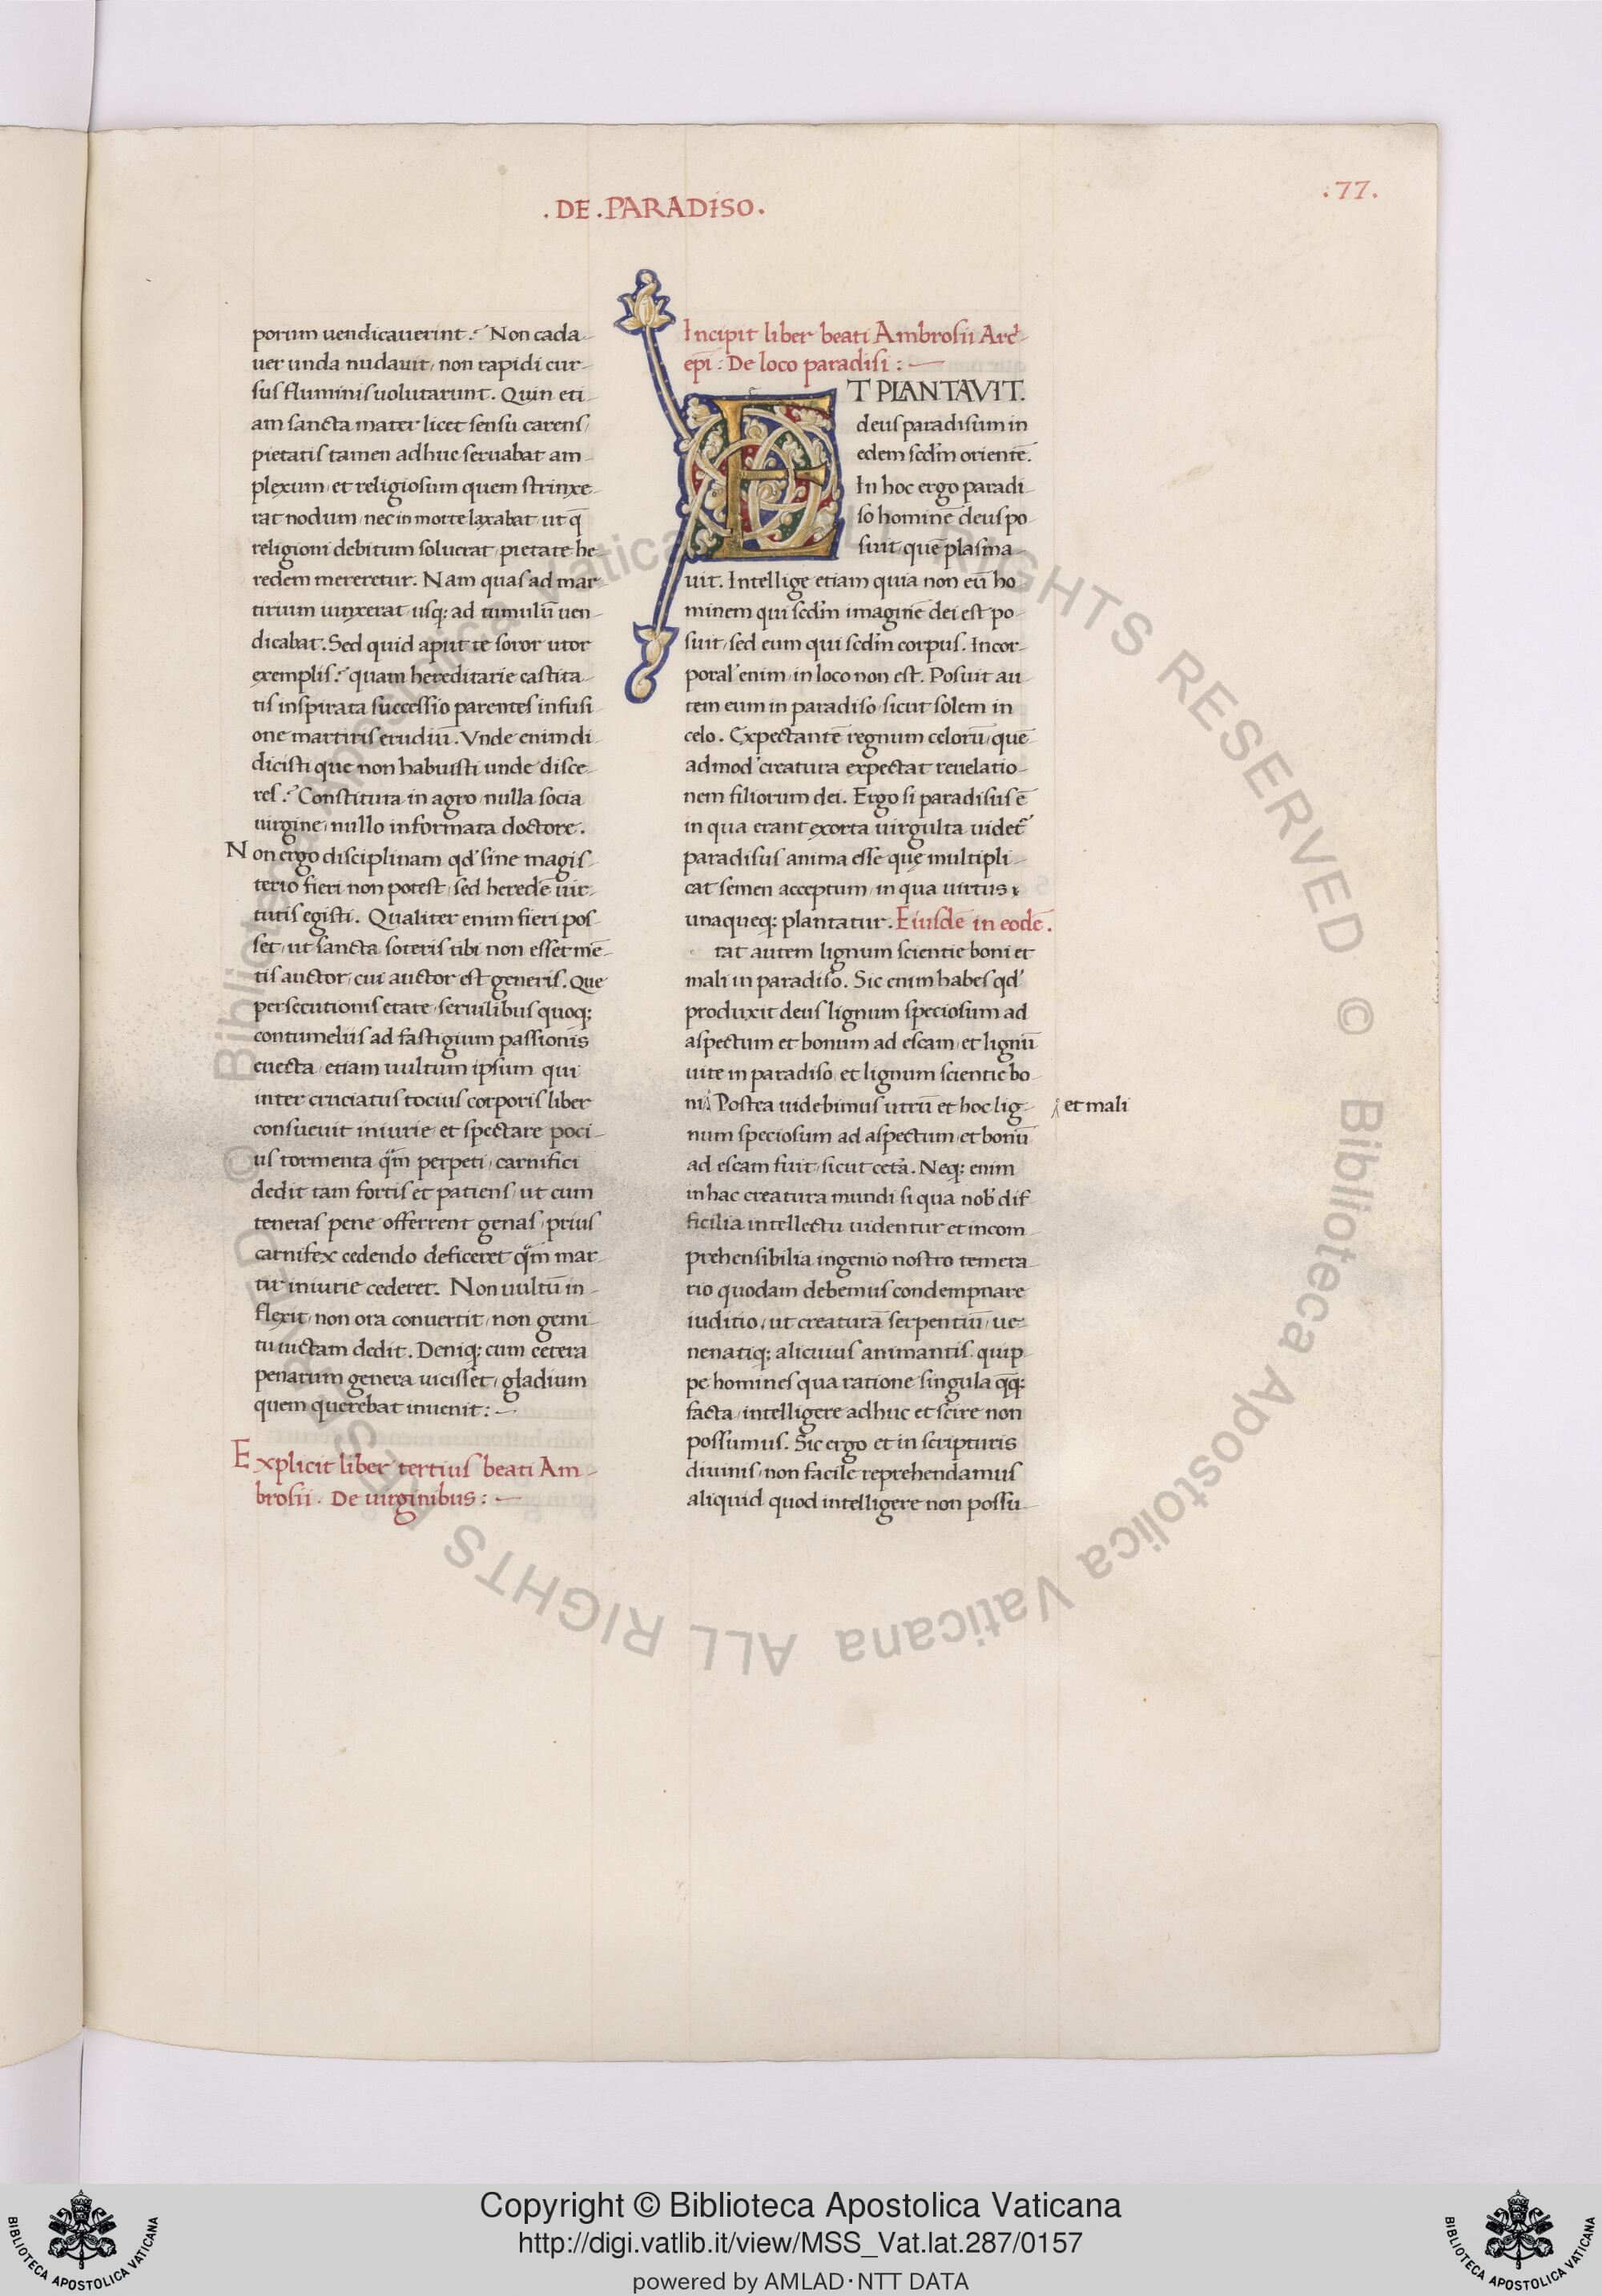 .77.
.DE.PARADISO.
porum uendicauerint? Non cada-
uer unda nudauit, non rapidi cur-
sus fluminis uolutarunt. Quin eti-
am sancta mater licet sensu carens,
pietatis tamen adhuc seruabat am-
plexum, et religiosum quem strinxe-
rat nodum, nec in morte laxabat, ut q̄
religioni debitum soluerat, pietate he-
redem mereretur. Nam quas ad mar-
tirium uinxerat, usq; ad tumulū uen-
dicabat. Sed quid aput te soror utor
exemplis? quam hereditarie castita-
tis inspirata successio parentes infusi-
one martiris erudiit. Vnde enim di-
dicisti que non habuisti unde disce-
res? Constituta in agro, nulla socia
uirgine, nullo informata doctore.
Non ergo disciplinam qd' sine magis-
terio fieri non potest, sed heredē uir-
tutis egisti. Qualiter enim fieri pos-
set, ut sancta soteris tibi non esset mē-
tis auctor, cui auctor est generis. Que
persecutionis etate, seruilibus quoq;
contumeliis ad fastigium passionis
euecta, etiam uultum ipsum qui
inter cruciatus tocius corporis liber
consueuit iniurie, et spectare poci-
us tormenta q̄m perpeti, carnifici
dedit tam fortis et patiens, ut cum
teneras pene offerrent genas, prius
carnifex cedendo deficeret q̄m mar-
tir iniurie cederet. Non uultū in-
flexit, non ora conuertit, non gemi-
tu uictam dedit. Deniq; cum cetera
penarum genera uicisset, gladium
quem querebat inuenit:—
Explicit liber tertius beati Am-
brosii. De uirginibus:—
Incipit liber beati Ambrosii Arc̄-
epī: De loco paradisi:—
ET PLANTAVIT.
deus paradisum in
edem scd'm orientē.
In hoc ergo paradi-
so hominē deus po-
suit, quē plasma-
uit. Intellige etiam quia non eū ho-
minem qui scd'm imaginē dei est po-
suit, sed eum qui scd'm corpus. Incor-
poral' enim, in loco non est. Posuit au-
tem eum in paradiso, sicut solem in
celo. Expectantē regnum celorū, quē-
admod' creatura expectat reuelatio-
nem filiorum dei. Ergo si paradisus ē
in qua erant exorta uirgulta, uidet'
paradisus anima esse que multipli-
cat semen acceptum, in qua uirtus
unaqueq; plantatur. Eiusdē in eodē.
rat autem lignum scientie boni et
mali in paradiso. Sic enim habes qd'
produxit deus lignum speciosum ad
aspectum et bonum ad escam, et lignū
uite in paradiso, et lignum scientie bo-
ni. Postea uidebimus utrū et hoc lig-
et mali
num speciosum ad aspectum, et bonū
ad escam fuit, sicut cetā. Neq; enim
in hac creatura mundi si qua nob' dif-
ficilia intellectu uidentur et incom-
prehensibilia ingenio nostro temera-
rio quodam debemus condempnare
iuditio, ut creaturā serpentiū, ue-
nenatiq; alicuius animantis. quip-
pe homines qua ratione singula q̄q;
facta, intelligere adhuc et scire non
possumus. Sic ergo et in scripturis
diuinis, non facile reprehendamus
aliquid quod intelligere non possu-
© Biblioteca Apostolica Vaticana ALL RIGHTS RESERVED © Biblioteca Apostolica Vaticana ALL RIGHTS RESERVED
Copyright © Biblioteca Apostolica Vaticana
http://digi.vatlib.it/view/MSS_Vat.lat.287/0157
powered by AMLAD·NTT DATA
BIBLIOTECA APOSTOLICA VATICANA
BIBLIOTECA APOSTOLICA VATICANA